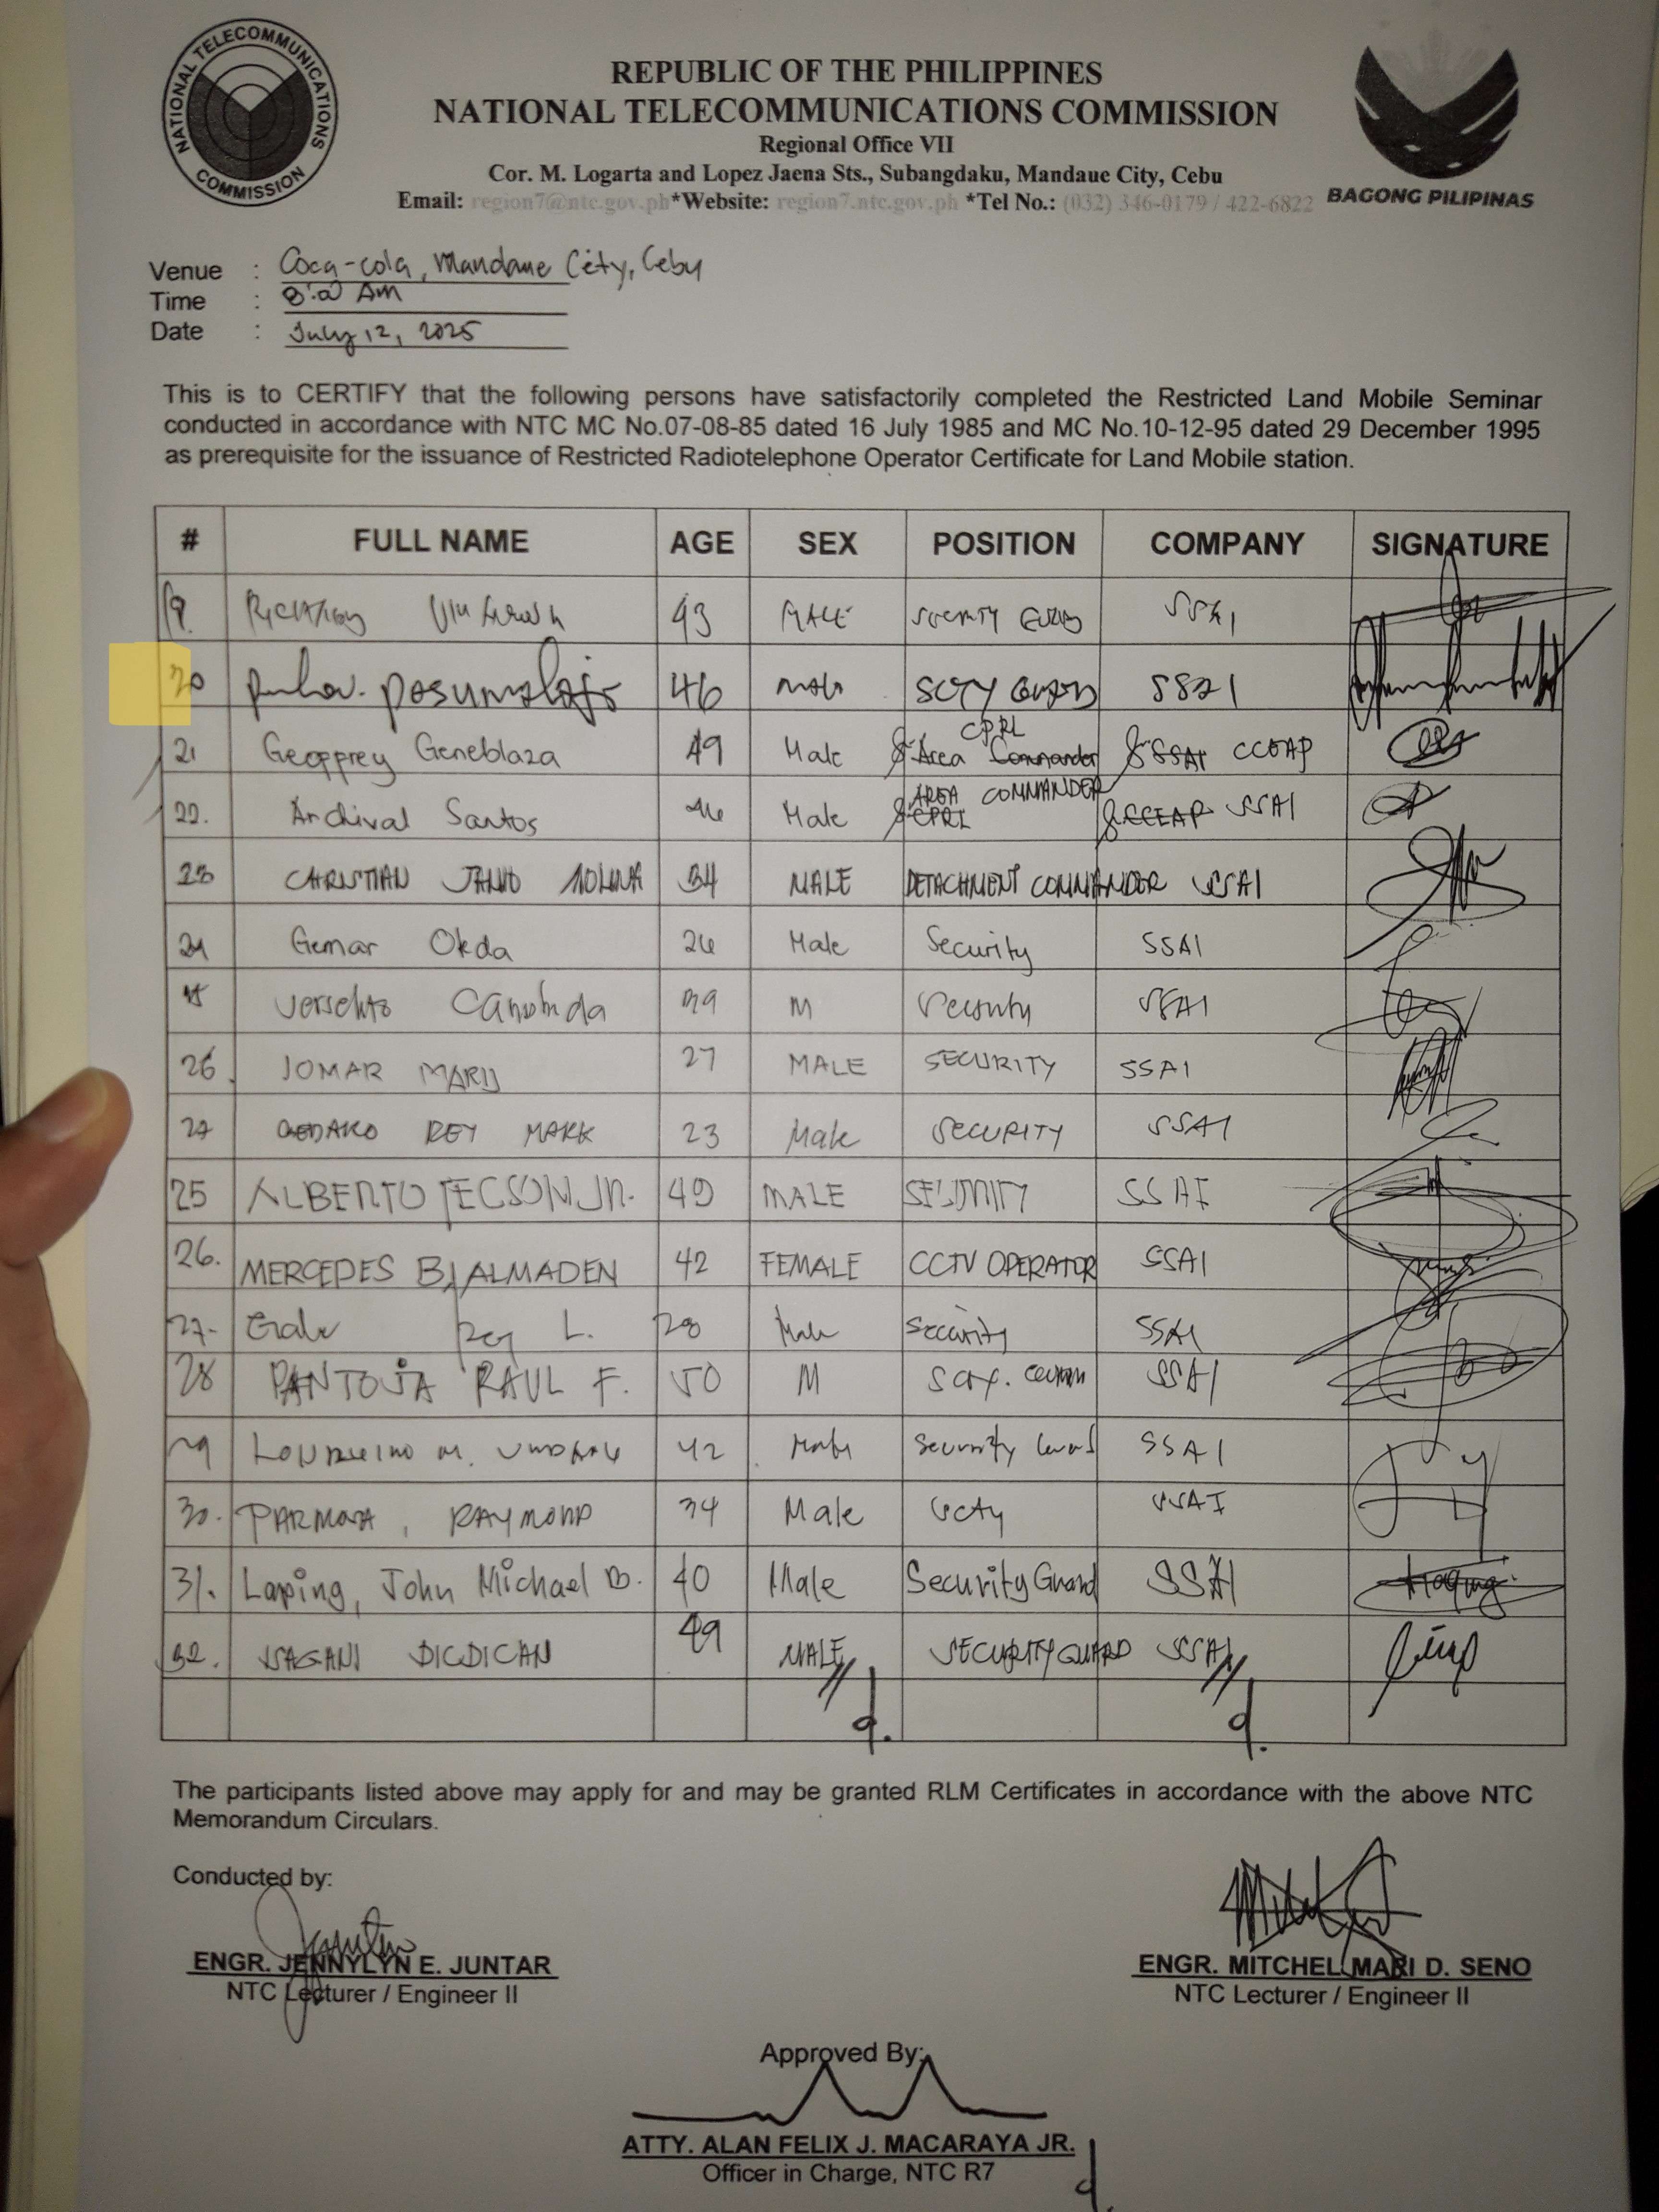 NATIONAL TELECOMMUNICATIONS COMMISSION
REPUBLIC OF THE PHILIPPINES
NATIONAL TELECOMMUNICATIONS COMMISSION
Regional Office VII
Cor. M. Logarta and Lopez Jaena Sts., Subangdaku, Mandaue City, Cebu
Email: region7@ntc.gov.ph*Website: region7.ntc.gov.ph *Tel No.: (032) 346-0179 / 422-6822
BAGONG PILIPINAS
Venue : Coca-cola, Mandaue City, Cebu
Time : 8:00 AM
Date : July 12, 2025
This is to CERTIFY that the following persons have satisfactorily completed the Restricted Land Mobile Seminar
conducted in accordance with NTC MC No.07-08-85 dated 16 July 1985 and MC No.10-12-95 dated 29 December 1995
as prerequisite for the issuance of Restricted Radiotelephone Operator Certificate for Land Mobile station.
# FULL NAME AGE SEX POSITION COMPANY SIGNATURE
19. 43 MALE SECURITY GUARD SSAI
20 46 Male SCTY GUARD SSAI
21 Geoffrey Geneblaza 49 Male Area Commander CPRL SSAI CCEAP
22. Archival Santos Male CPRL AREA COMMANDER CCEAP SSAI
23 CHRISTIAN 34 MALE DETACHMENT COMMANDER SSAI
24 Gemar Okda 26 Male Security SSAI
25 39 M Security SSAI
26. JOMAR 27 MALE SECURITY SSAI
27 REY MARK 23 Male SECURITY SSAI
25 ALBERTO TECSON JR. 49 MALE SECURITY SSAI
26. MERCEDES B. ALMADEN 42 FEMALE CCTV OPERATOR SSAI
27. Rey L. 28 Male Security SSAI
28 PANTOJA RAUL F. 50 M SSAI
29 M. 42 Male Security Guard SSAI
30. RAYMOND 34 Male Scty SSAI
31. Laping, John Michael B. 40 Male Security Guard SSAI
32. ISAGANI DICDICAN 49 MALE SECURITY GUARD SSAI
The participants listed above may apply for and may be granted RLM Certificates in accordance with the above NTC
Memorandum Circulars.
Conducted by:
ENGR. JENNYLYN E. JUNTAR
NTC Lecturer / Engineer II
ENGR. MITCHEL MARI D. SENO
NTC Lecturer / Engineer II
Approved By:
ATTY. ALAN FELIX J. MACARAYA JR.
Officer in Charge, NTC R7